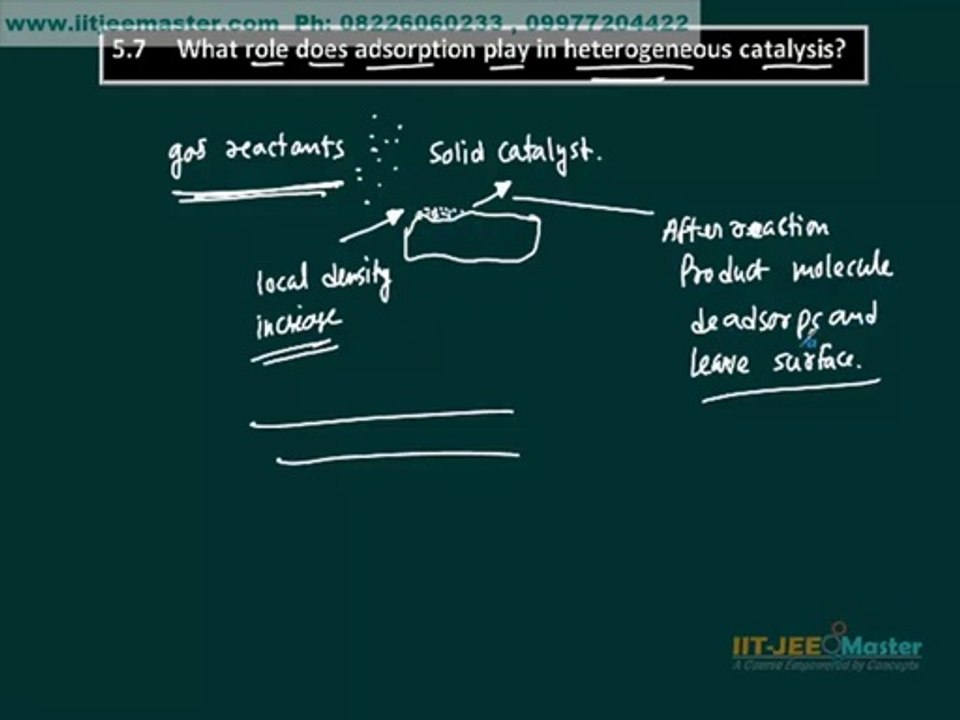 www.iitjeemaster.com Ph: 08226060233 , 09977204422
5.7 What role does adsorption play in heterogeneous catalysis?
gas reactants
Solid Catalyst.
local density
increase
After reaction
Product molecule
deadsorps and
leave surface.
IIT-JEE Master
A Course Empowered by Concepts